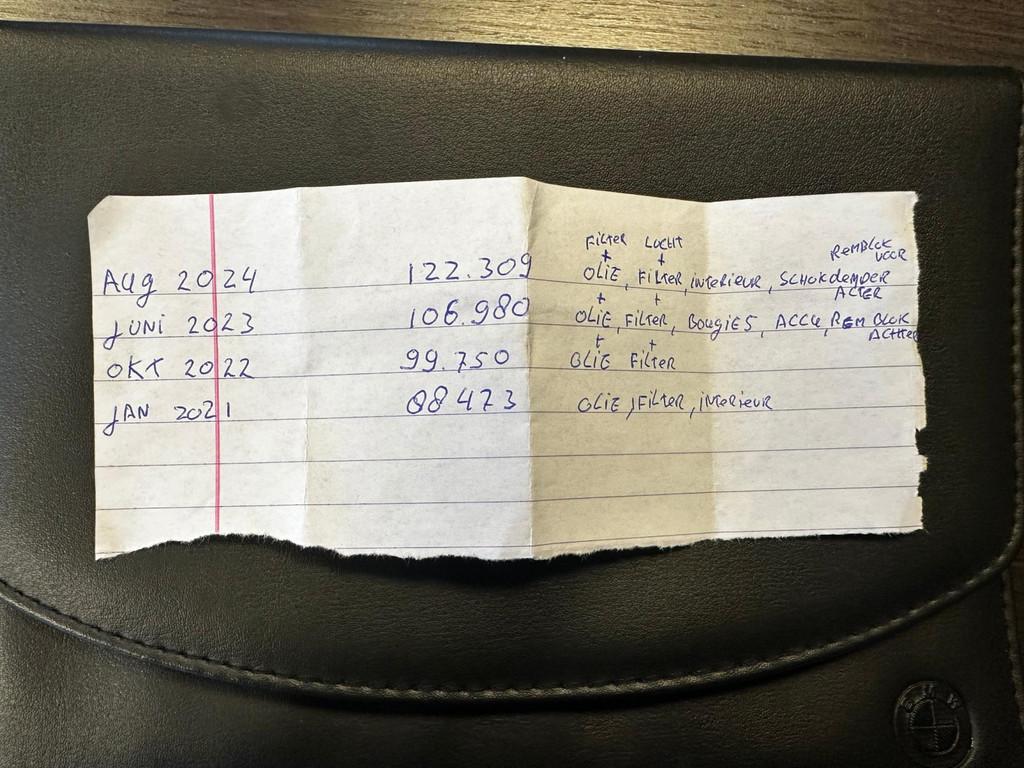 FilTER LUCHT REMBLOK VOOR
+ +
Aug 2024 122.309 OLIE, FilTER, iNTERIEUR, SCHOKdemper ACTER
+ +
JUNI 2023 106.980 OLIE, FilTER, BougiES, ACCU, REM BLOK ACHTER
+ +
OKT 2022 99.750 OLIE FilTER
JAN 2021 88473 OLIE, FilTER, iNTERIEUR
BMW